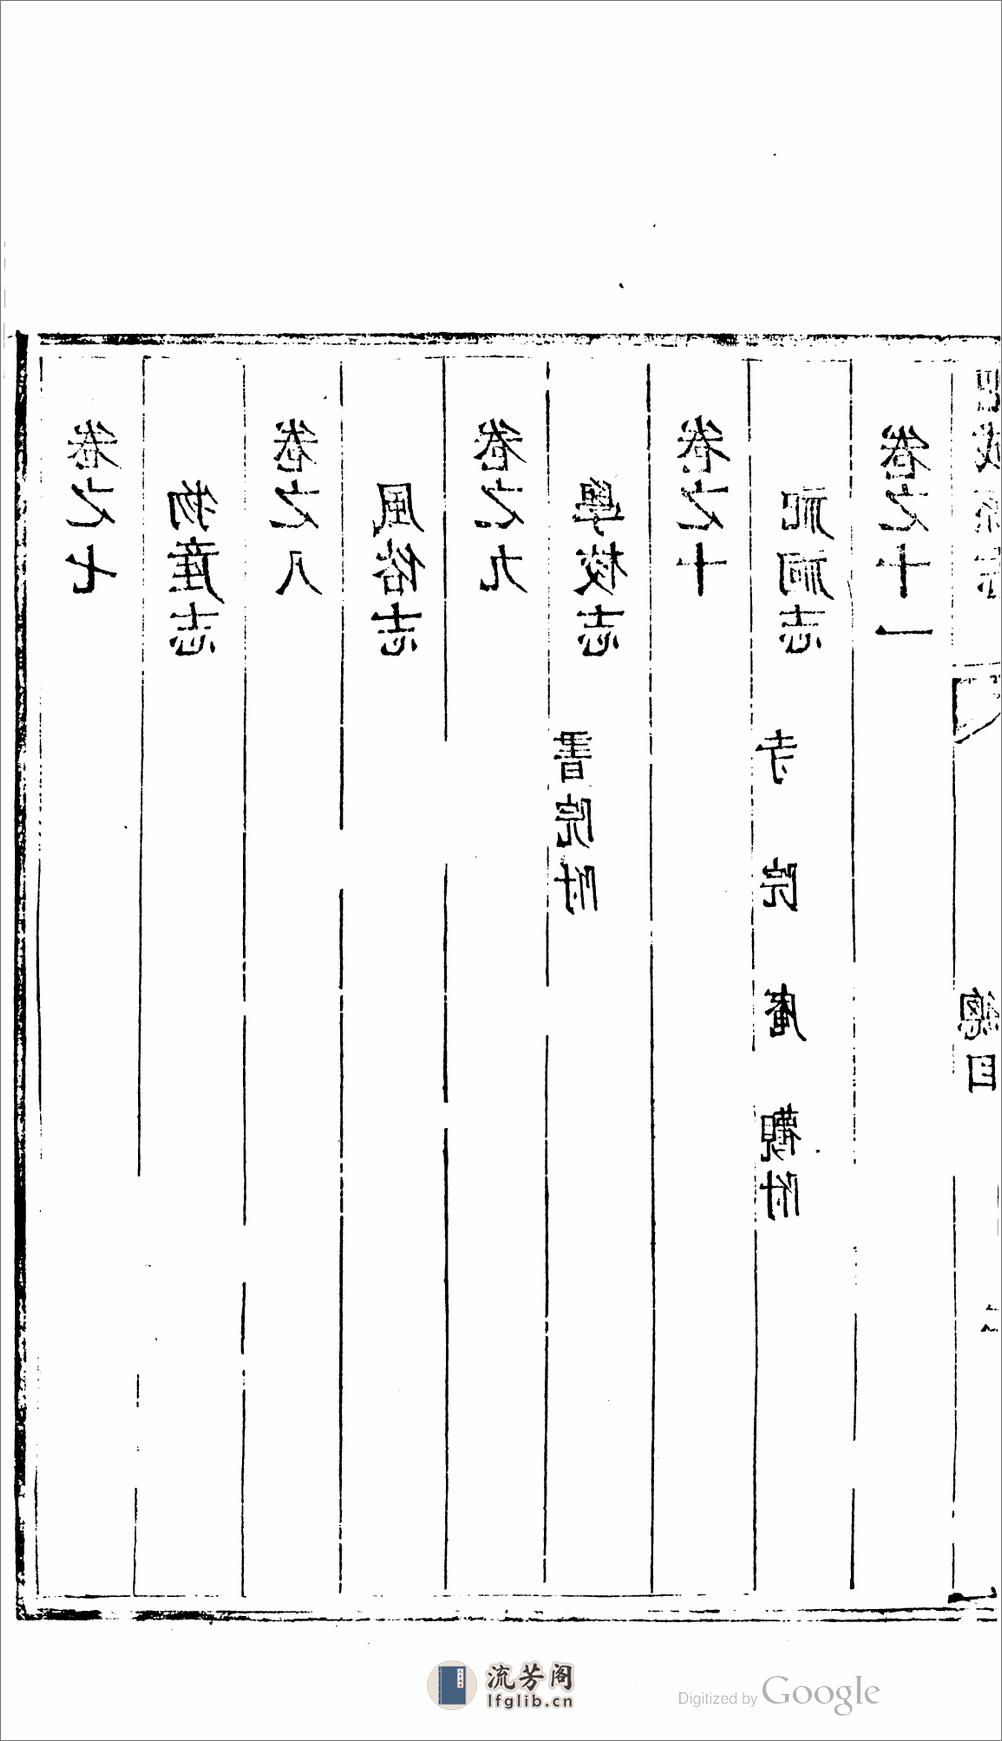 卷之七
物產志
卷之八
風俗志
卷之九
學校志 書院附
卷之十
祀祠志 寺院庵觀附
卷之十一
總目
流芳阁
lfglib.cn
Digitized by Google